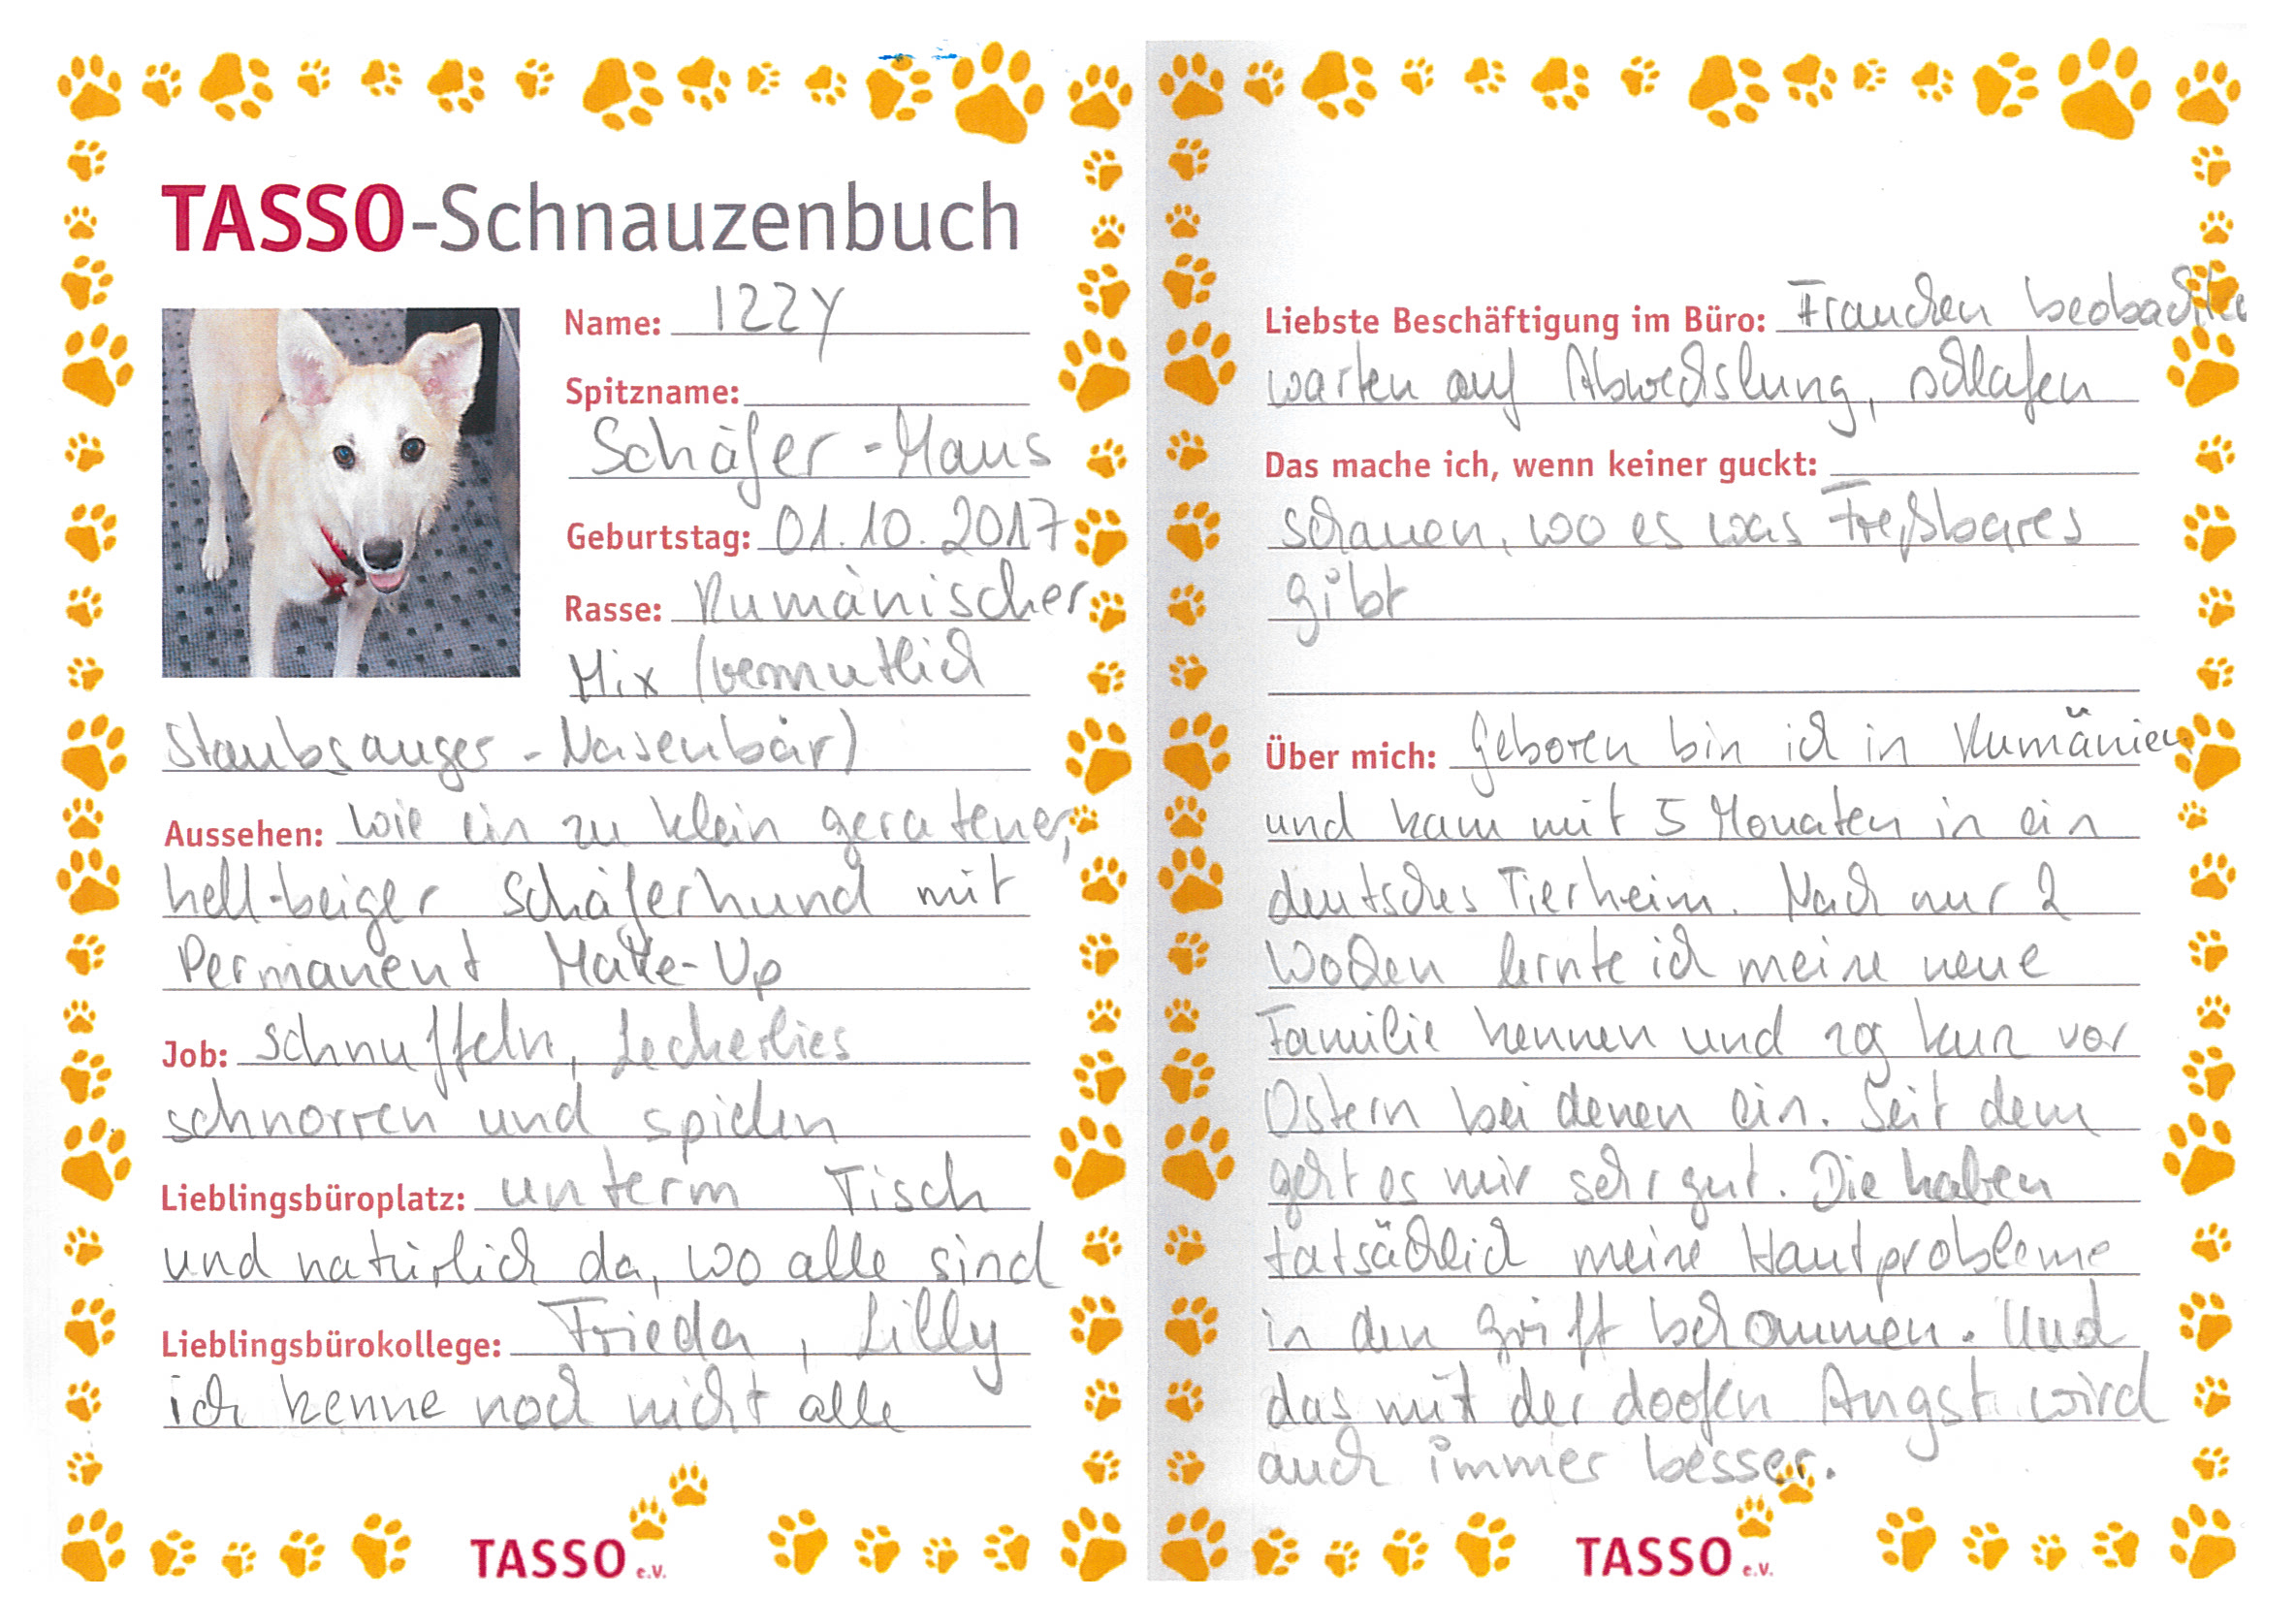 TASSO-Schnauzenbuch
Name: IZZY
Spitzname:
Schäfer-Maus
Geburtstag: 01.10.2017
Rasse: Rumänischer
Mix (vermutlich
Staubsauger-Nasenbär)
Aussehen: wie ein zu klein geratener,
hell-beiger Schäferhund mit
Permanent Make-Up
Job: schnuffeln, Leckerlies
schnorren und spielen
Lieblingsbüroplatz: unterm Tisch
und natürlich da, wo alle sind
Lieblingsbürokollege: Frieda, Lilly
ich kenne noch nicht alle
TASSO e.V.
Liebste Beschäftigung im Büro: Frauchen beobachten
warten auf Abwechslung, schlafen
Das mache ich, wenn keiner guckt:
schauen, wo es was Freßbares
gibt
Über mich: Geboren bin ich in Rumänien
und kam mit 5 Monaten in ein
deutsches Tierheim. Nach nur 2
Wochen lernte ich meine neue
Familie kennen und zog kurz vor
Ostern bei denen ein. Seit dem
geht es mir sehr gut. Die haben
tatsächlich meine Hautprobleme
in den Griff bekommen. Und
das mit der doofen Angst wird
auch immer besser.
TASSO e.V.